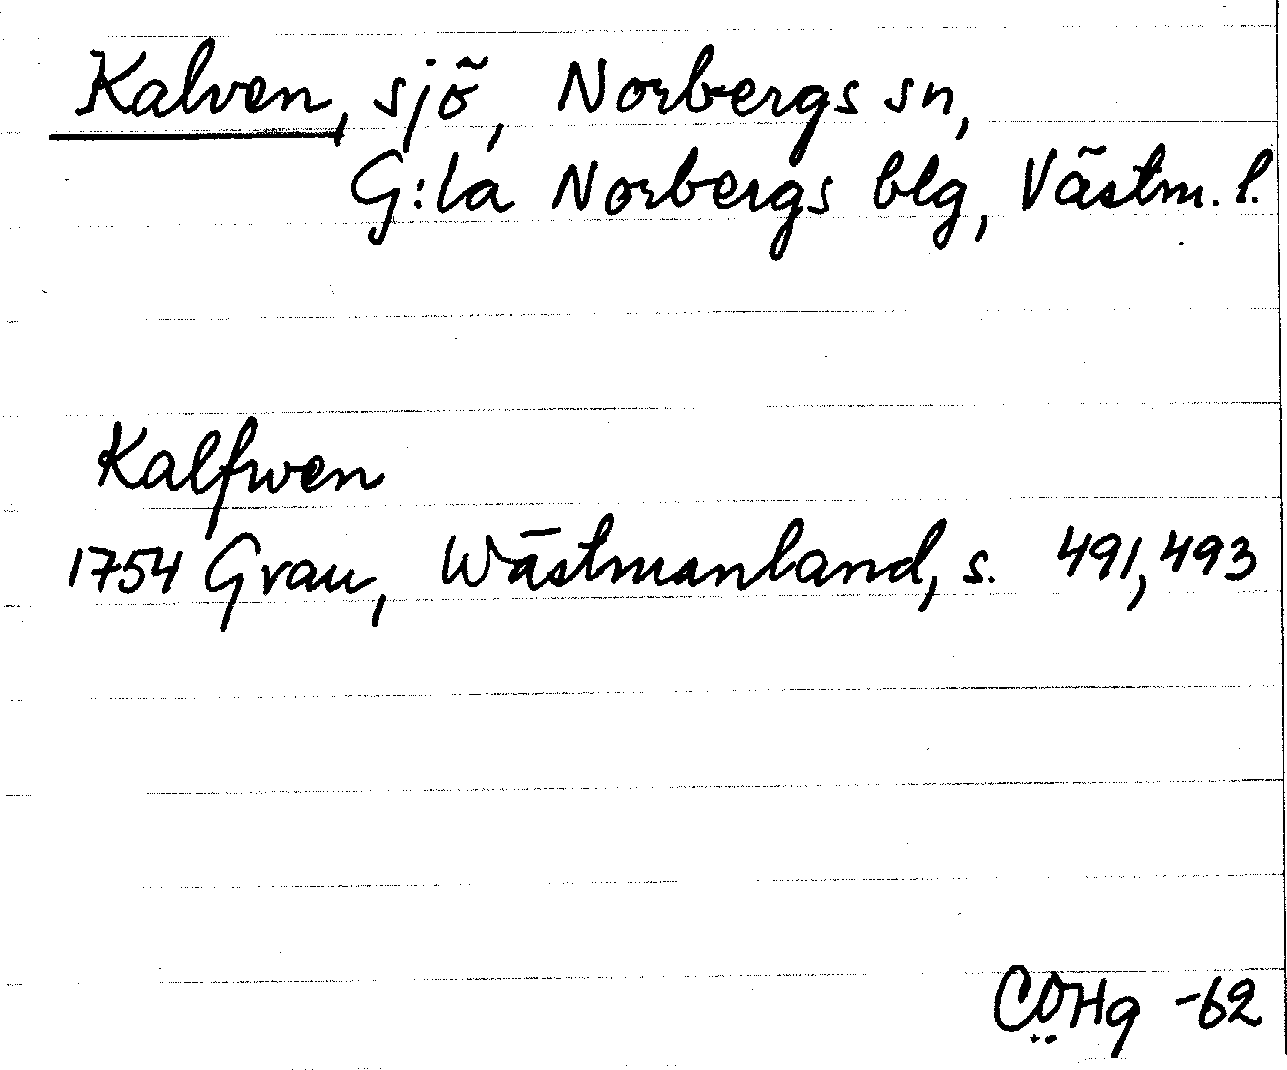 Kalven, sjö, Norbergs sn,
G:la Norbergs blg, Västm. l.
Kalfwen
1754 Grau, Wästmanland, s. 491, 493
CÖHg -62